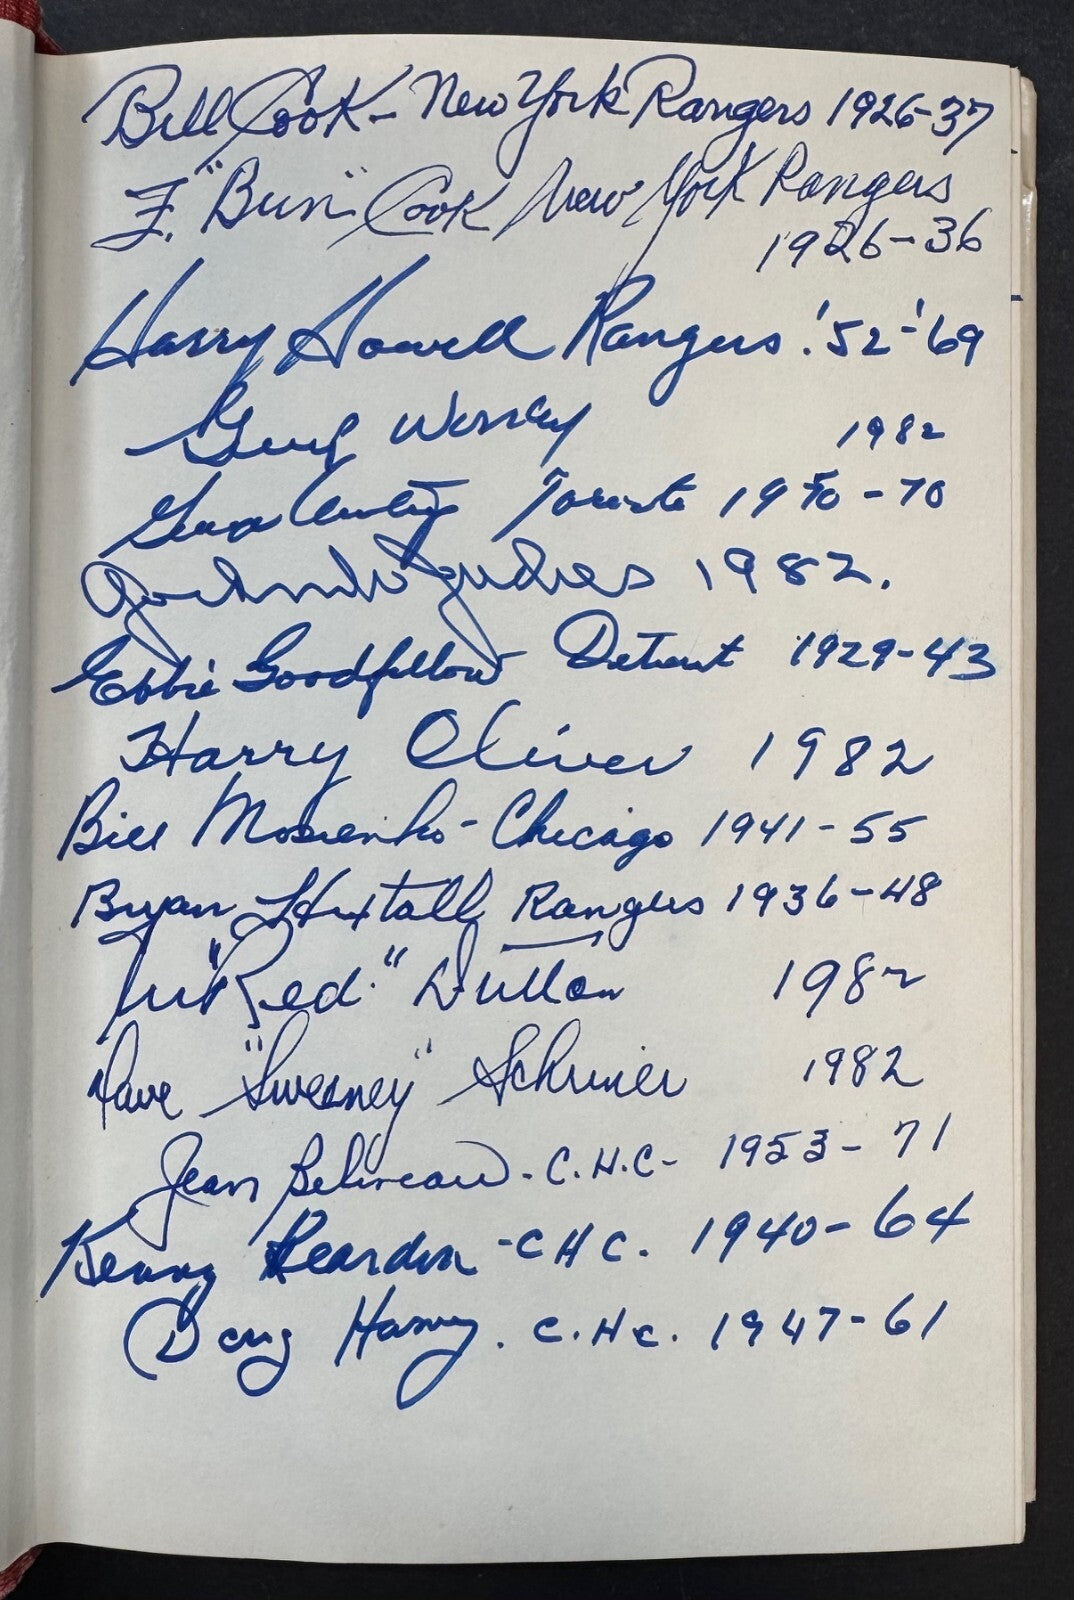 Bill Cook - New York Rangers 1926-37
F. "Bun" Cook New York Rangers
1926-36
Harry Howell Rangers '52-'69
Gump Worsley 1982
Toronto 1950-70
1982.
Ebbie Goodfellow Detroit 1929-43
Harry Oliver 1982
Bill Mosienko - Chicago 1941-55
Bryan Hextall Rangers 1936-48
"Red" Dutton 1982
Dave "Sweeney" Schriner 1982
Jean Beliveau - C.H.C- 1953-71
Kenny Reardon - C H C. 1940-64
Doug Harvey. C.H.C. 1947-61